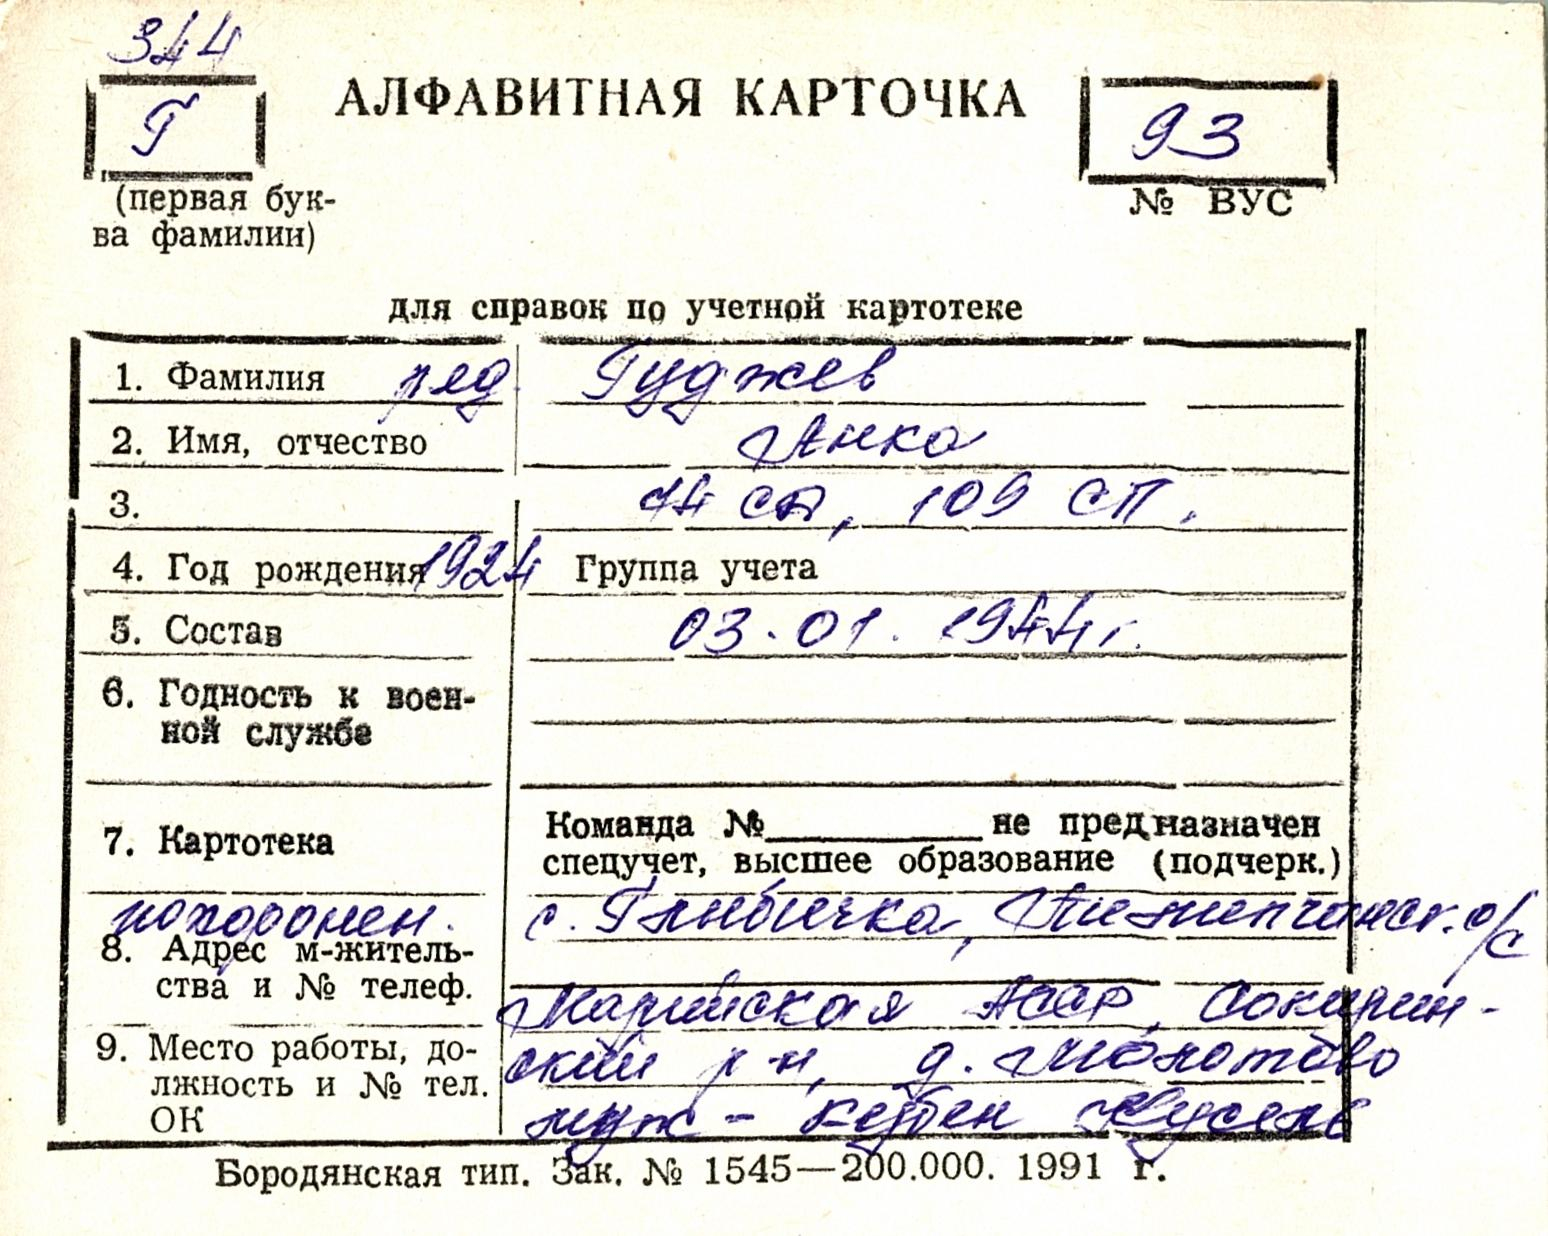 344
Г
АЛФАВИТНАЯ КАРТОЧКА
93
(первая бук-
ва фамилии)
№ ВУС
для справок по учетной картотеке
1. Фамилия ряд. Гуджев
2. Имя, отчество Янко
3. 74 сд, 109 СП.
4. Год рождения 1924 Группа учета
5. Состав 03.01.1944г.
6. Годность к воен-
ной службе
7. Картотека
Команда № не предназначен
спецучет, высшее образование (подчерк.)
похоронен. с. Глыбочка,
8. Адрес м-житель-
ства и № телеф.
Марийская АССР,
9. Место работы, до-
лжность и № тел.
ОК
ский р-н, д. Молотово
муж -
Бородянская тип. Зак. № 1545—200.000. 1991 г.